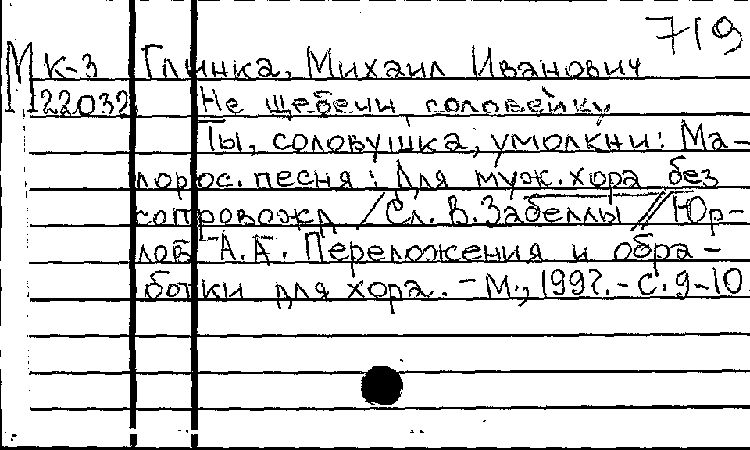 719
М к-3 Глинка, Михаил Иванович
122032 Не щебечи, соловейку
Ты, соловушка, умолкни: Ма-
лорос. песня: Для муж. хора без
сопровожд / Сл. В. Забеллы // Юр-
лов А.А. Переложения и обра-
ботки для хора. - М., 199?. - С. 9-10